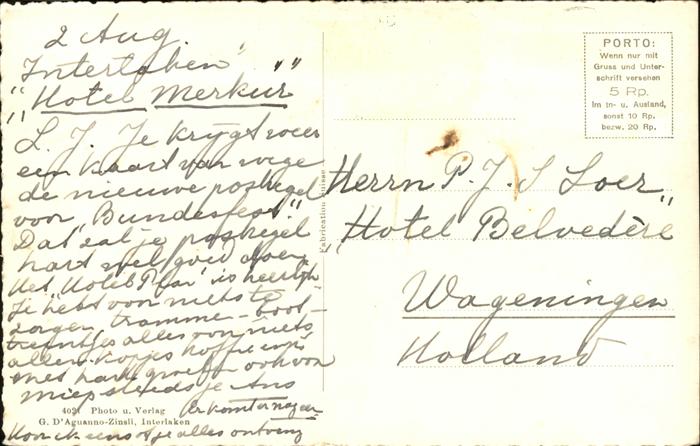 2 Aug.
Interlaken
"Hotel Merkur"
L. J. Je krijgt weer
een kaart van wege
de nieuwe postzegel
voor "Bundesfest".
Dat zal je postzegel
hart wel goed doen
Het Hotel Plan is heerlijk
Je hebt voor niets te
zorgen tramme-boot-
treintjes alles voor niets
allen kopjes koffie
met hart. groeten ook van
Miep steeds je Ans
4021 Photo u. Verlag
G. D'Aguanno-Zinsli, Interlaken
Hoor ik eens of je alles ontving
Fabrication Suisse
PORTO:
Wenn nur mit
Gruss und Unter-
schrift versehen
5 Rp.
Im In- u. Ausland,
sonst 10 Rp.
bezw. 20 Rp.
Herrn P. J. S Loer
"Hotel Belvedère"
Wageningen
Holland